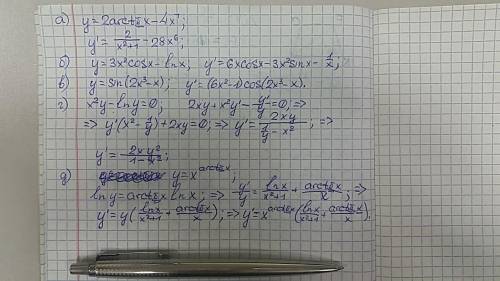 а) y=2arctg x-4x⁷;
y'= 2/(x²+1) -28x⁶;
б) y=3x²cosx-lnx; y'=6xcosx-3x²sinx- 1/x;
в) y=sin(2x³-x); y'=(6x²-1)cos(2x³-x).
г) x²y-lny=0; 2xy+x²y'- y'/y=0; ⇒
⇒ y'(x²- 1/y)+2xy=0; ⇒ y'= 2xy/(1/y - x²); ⇒
y'= 2xy²/(1-x²y);
д) y=x^(arctg x);
lny=arctg x lnx; ⇒ y'/y = lnx/(x²+1) + arctg x/x; ⇒
y'=y( lnx/(x²+1) + arctg x/x ); ⇒ y'=x^(arctg x)( lnx/(x²+1) + arctg x/x ).